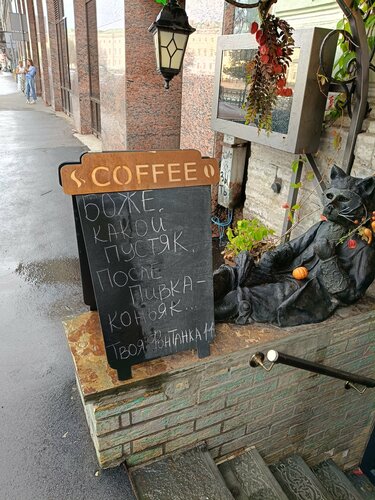 COFFEE
БОЖЕ,
КАКОЙ
ПУСТЯК,
ПОСЛЕ
ПИВКА -
КОНЬЯК...
ТВОЯ ФОНТАНКА 14